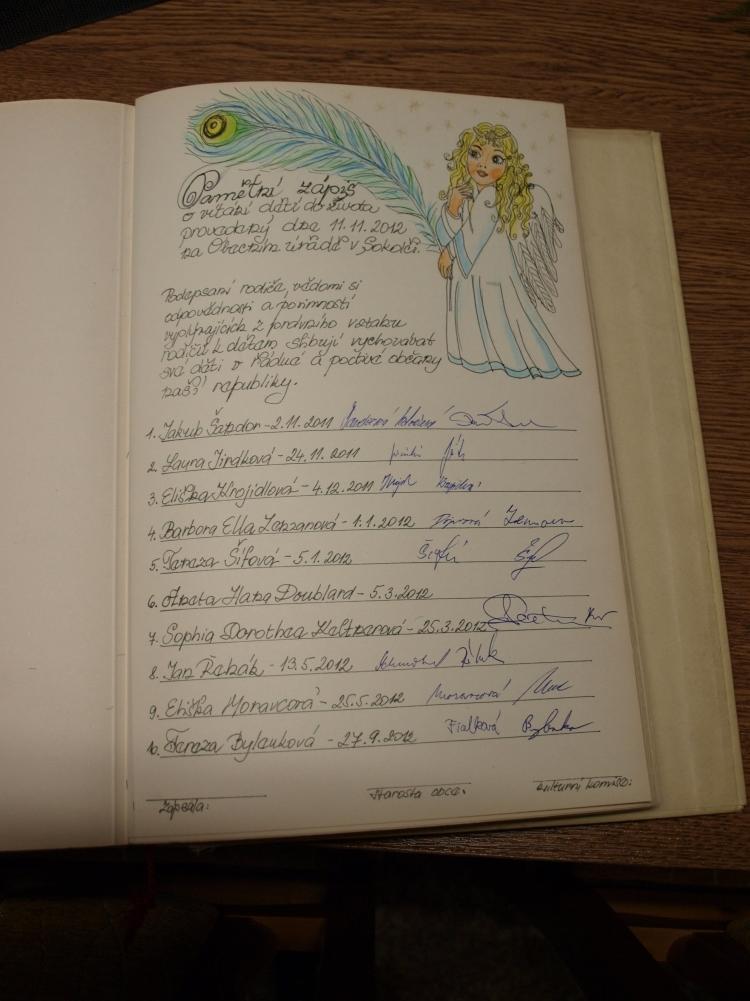 Pamětní zápis
o vítání dětí do života
provedený dne 11.11.2012
na Obecním úřadě v Sokolči.
Podepsaní rodiče, vědomi si
odpovědnosti a povinností
vyplývajících z
rodičů k dětem slibují vychovávat
své děti v řádné a poctivé občany
naší republiky.
1. Jakub Šandor - 2.11.2011
2. Laura Jindková - 24.11.2011
3. Eliška Krojidlová - 4.12.2011
4. Barbora Ella Zemanová - 1.1.2012
5. Tereza Šífová - 5.1.2012
6. Aneta Hana Doubland - 5.3.2012
7. Sophia Dorothea Kastnerová - 25.3.2012
8. Jan Řehák - 13.5.2012
9. Eliška Moravcová - 25.5.2012 Moravcová
10. Tereza Bylanková - 27.9.2012 Fialková
Zapsala: Starosta obce: Kulturní komise: